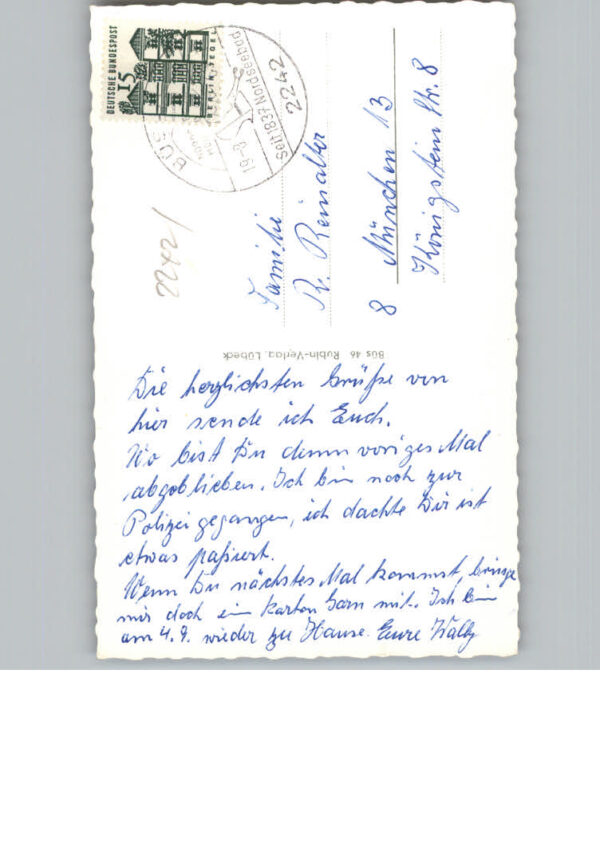 DEUTSCHE BUNDESPOST
15
BERLIN-TEGEL
BÜS
19-8
Seit 1837 Nordseebad
2242
2242/
Familie
R. Reinalter
8 München 13
Königstein Str. 8
Büs 46 Rubin-Verlag, Lübeck
Die herzlichsten Grüße von
hier sende ich Euch.
Wo bist Du denn voriges Mal
abgeblieben. Ich bin noch zur
Polizei gegangen, ich dachte Dir ist
etwas paßiert.
Wenn Du nächstes Mal kommst, bringe
mir doch ein Karton Garn mit. Ich bin
am 4.9. wieder zu Hause. Eure Wally